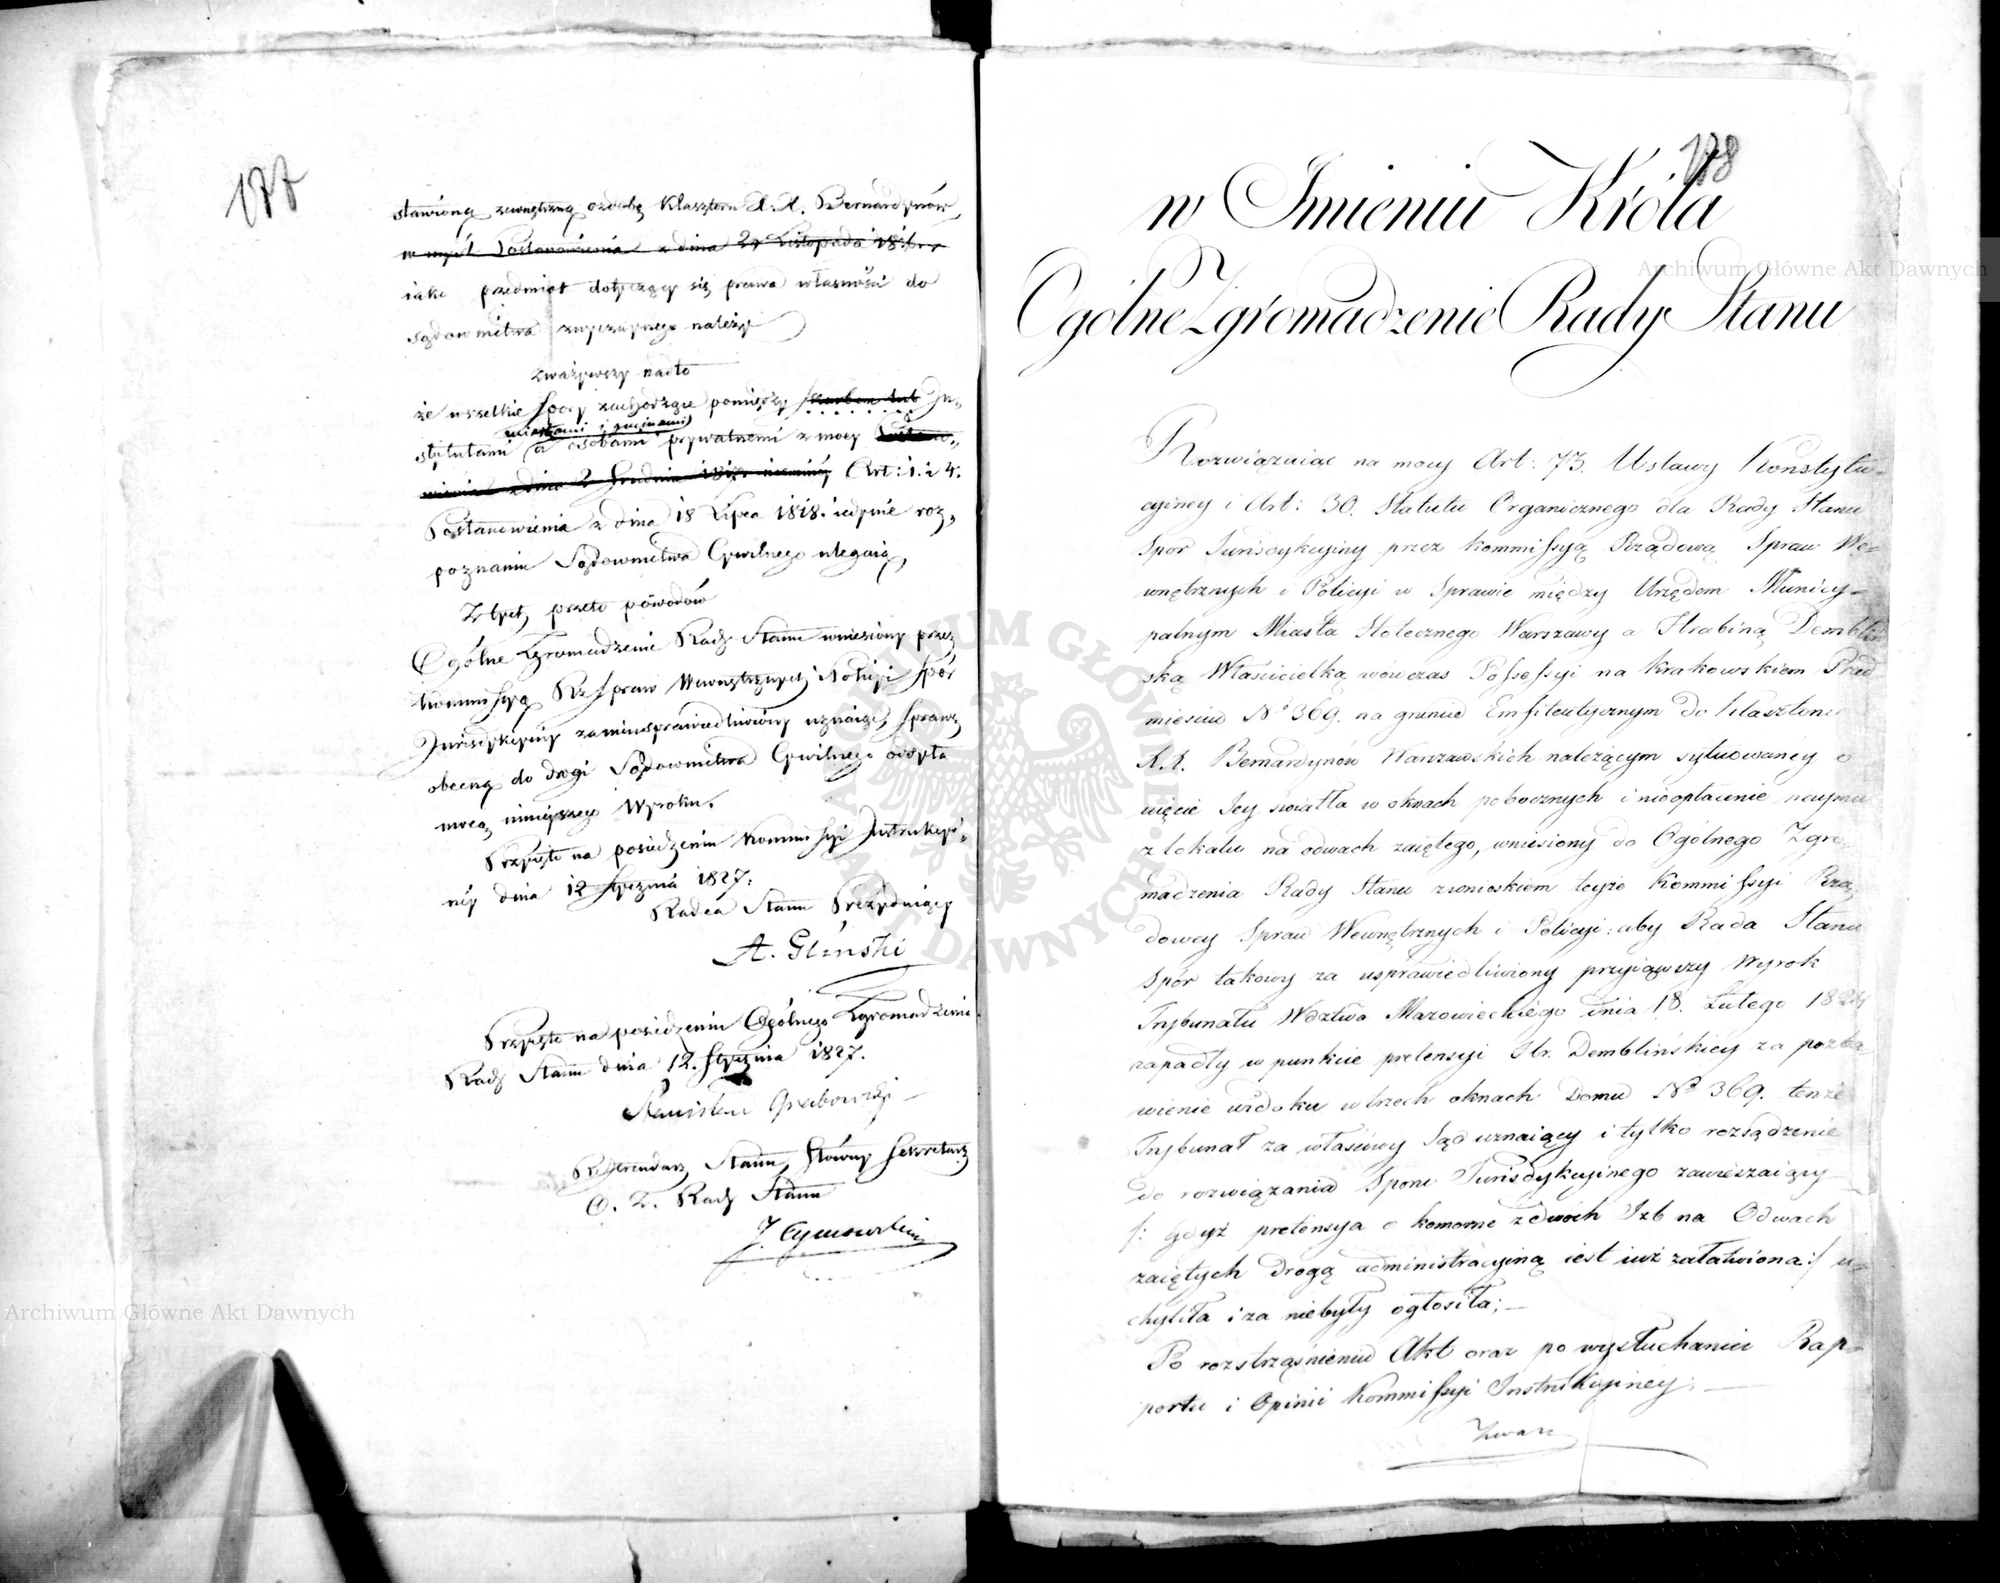 177
stawioną zewnętrzną ozdobę Klasztoru X.X. Bernardynów,
w myśl Postanowienia z dnia Listopada
iako przedmiot dotyczący się prawa własności do
sądownictwa zwyczaynego należy
Zważywszy nadto
że wszelkie spory zachodzące pomiędzy Skarbem lub In-
miastami i gminami
stytutami a osobami prywatnemi z mocy
z dnia 2 Grudnia Art: 1. i 4.
Postanowienia z dnia 18 Lipca 1818. iedynie roz-
poznaniu Sądownictwa Cywilnego ulegaią,
Z tych przeto powodów
Ogólne Zgromadzenie Rady Stanu wniesiony przez
Kommissyą Rz. Spraw Wewnętrznych i Policyi Spór
Jurisdykcyiny za nieusprawiedliwiony uznaiąc, sprawę
obecną do drogi Sądownictwa Cywilnego odsyła
mocą ninieyszego Wyroku.
Przyięto na posiedzeniu Kommissyi Instrukcyi-
ney dnia 12 Stycznia 1827.
Radca Stanu Prezyduiący
A. Gliński
Przyięto na posiedzeniu Ogólnego Zgromadzenia
Rady Stanu dnia 12. Stycznia 1827.
Stanisław Grabowski
Referendarz Stanu, Główny Sekretarz
O. Z. Rady Stanu
J. Tymowski
178
w Imieniu Króla
Ogólne Zgromadzenie Rady Stanu
Rozwiązuiąc na mocy Art: 73. Ustawy Konstytu-
cyiney i Art: 30. Statutu Organicznego dla Rady Stanu
Spór Jurisdykcyiny przez Kommissyą Rządową Spraw We-
wnętrznych i Policyi w Sprawie między Urzędem Municy-
palnym Miasta Stołecznego Warszawy a Hrabiną Demblin
ską Właścicielką wówczas Possessyi na Krakowskiem Przed
mieściu No 369. na gruncie Emfiteutycznym do Klasztoru
X.X. Bernardynów Warszawskich należącym sytuowaney o
uięcie Jey światła w oknach pobocznych i nieopłacenie naymu
z lokalu na odwach zaiętego, wniesiony do Ogólnego Zgro
madzenia Rady Stanu z wnioskiem teyże Kommissyi Rzą
dowey Spraw Wewnętrznych i Policyi: aby Rada Stanu
Spór takowy za usprawiedliwiony przyiąwszy Wyrok
Trybunału Wdztwa Mazowieckiego dnia 18. Lutego 1824
zapadły w punkcie pretensyi Hr. Demblińskiey za pozba
wienie widoku w trzech oknach Domu No 369. tenże
Trybunał za właściwy Sąd uznaiący i tylko rozsądzenie
do rozwiązania Sporu Jurisdykcyinego zawieszaiący
/: gdyż pretensya o komorne z dwóch Izb na Odwach
zaiętych drogą administracyiną iest iuż załatwiona :/ u-
chyliła i za niebyły ogłosiła; —
Po roztrząśnieniu Akt oraz po wysłuchaniu Rap-
portu i Opinii Kommissyi Instrukcyiney; —
Zwaz
Archiwum Główne Akt Dawnych
Archiwum Główne Akt Dawnych
ARCHIWUM GŁÓWNE AKT DAWNYCH